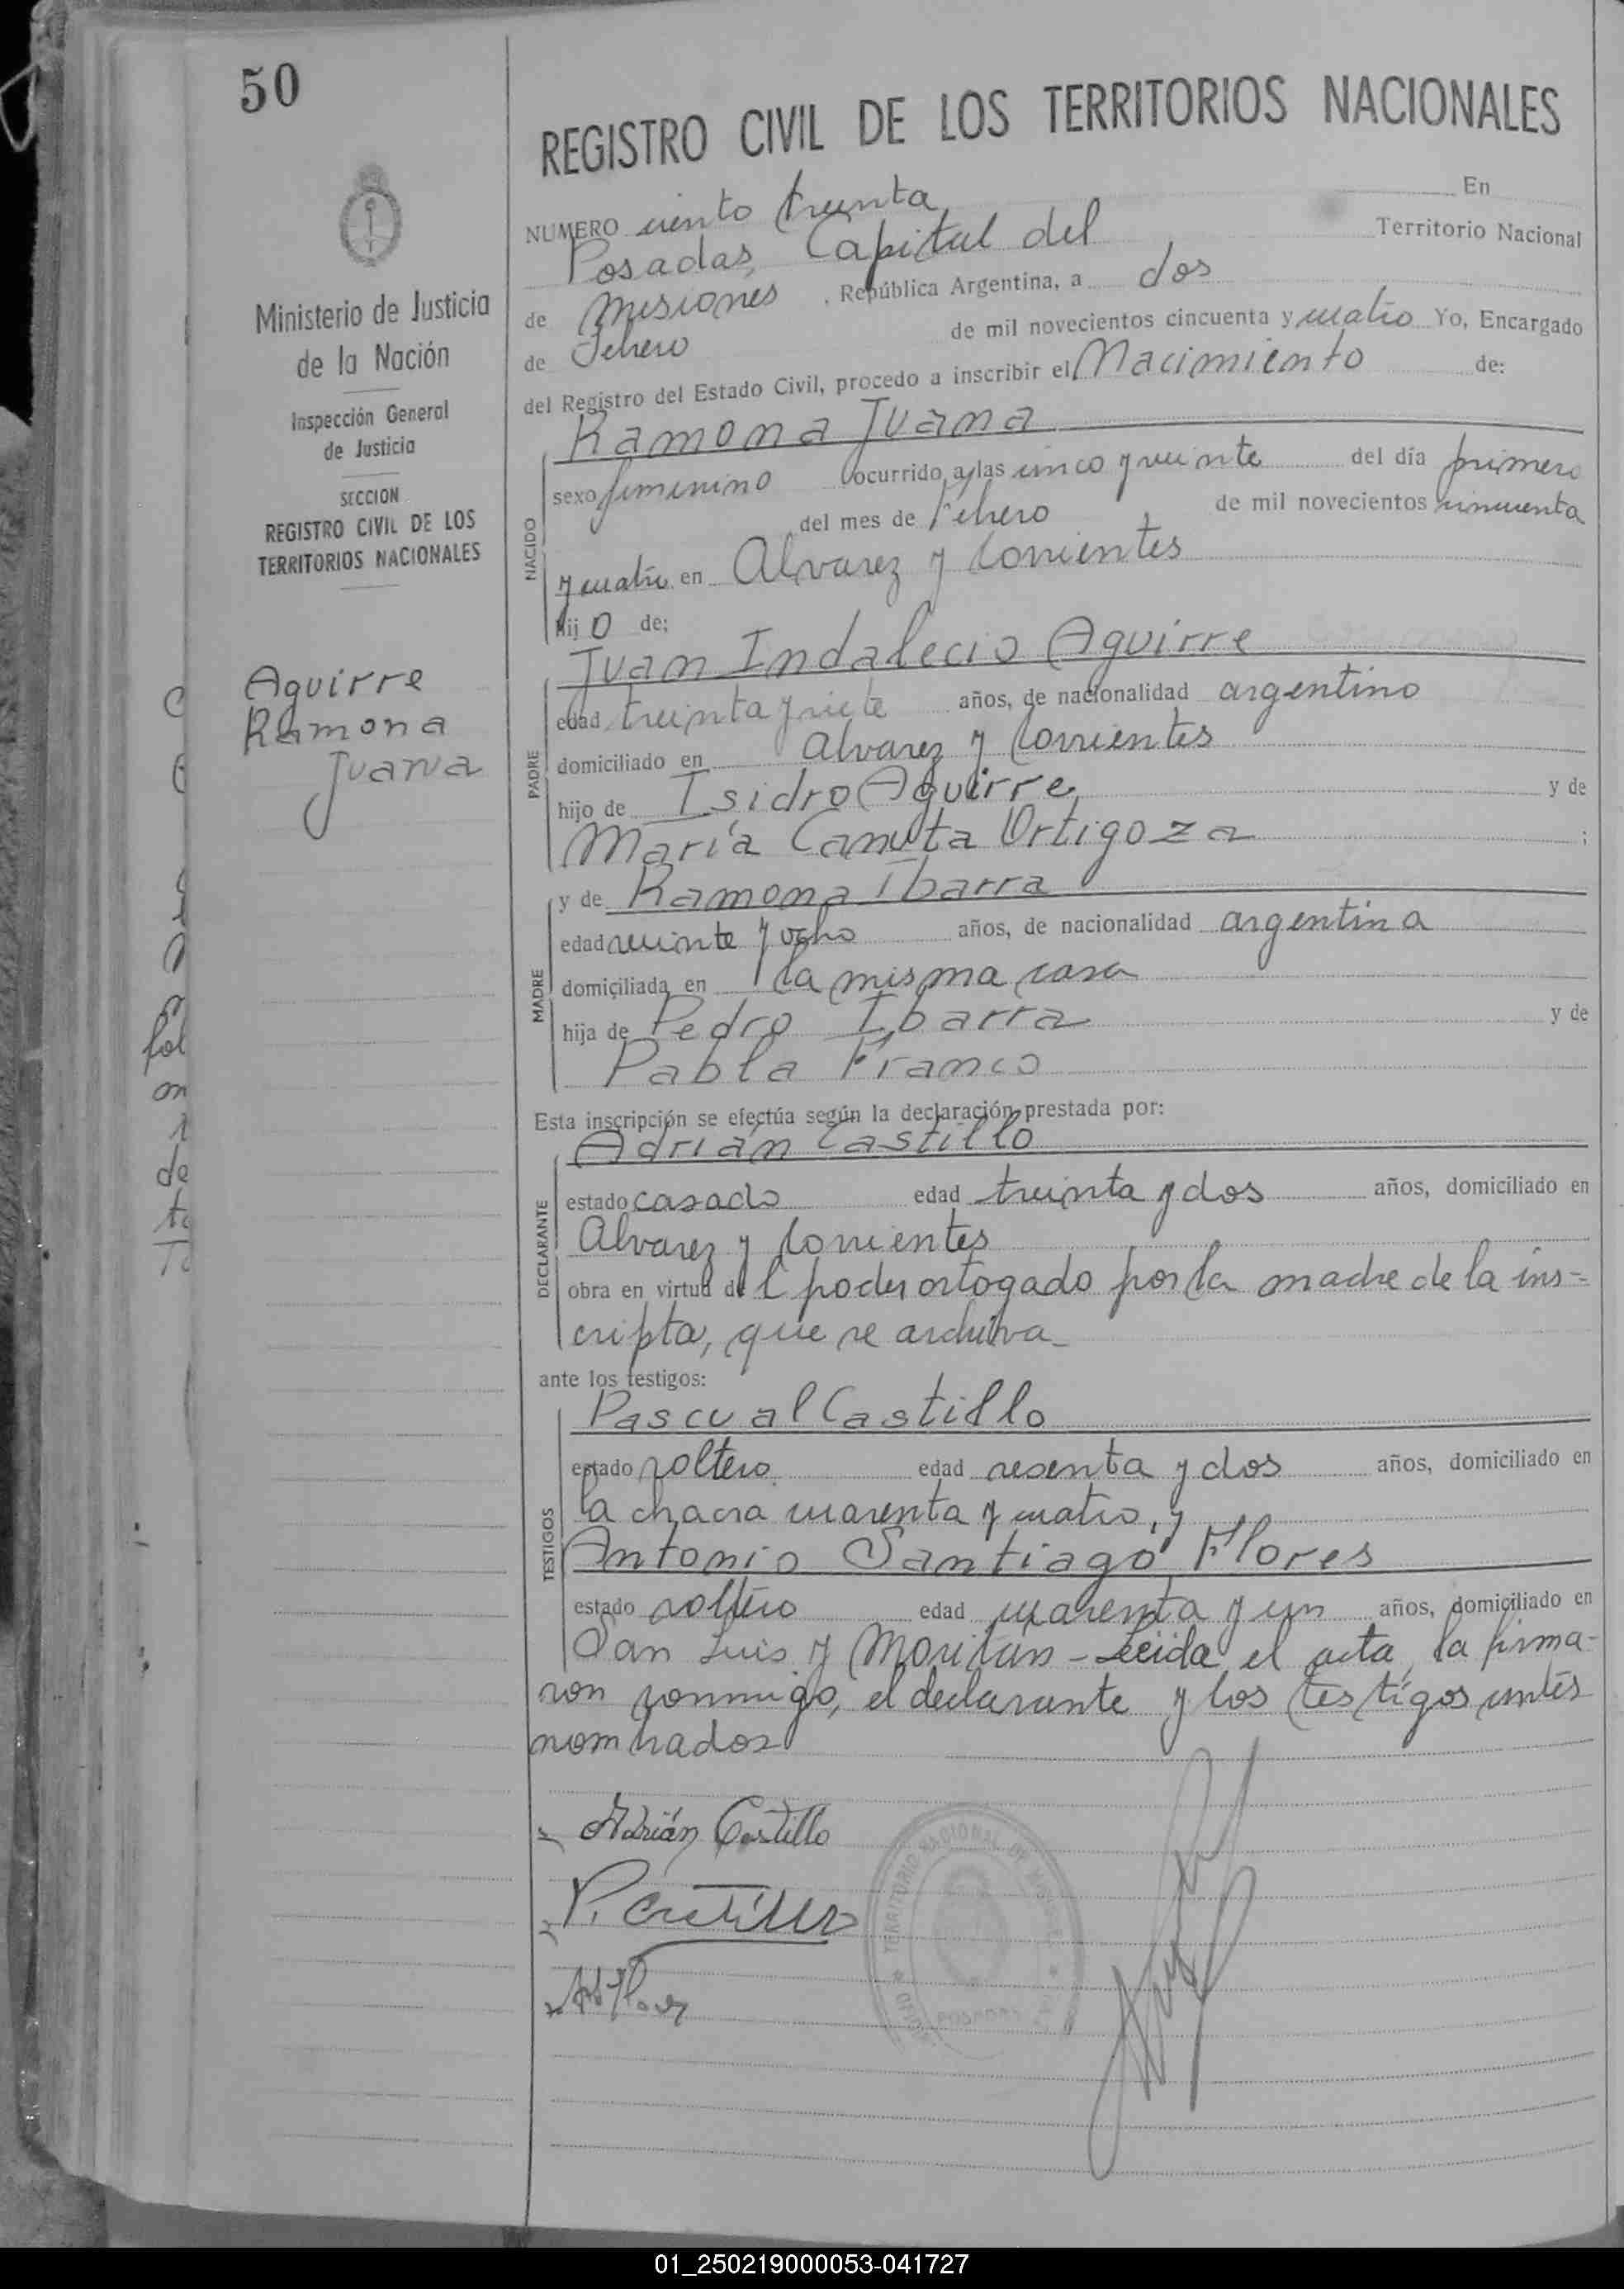 50
REGISTRO CIVIL DE LOS TERRITORIOS NACIONALES
Ministerio de Justicia
de la Nación
Inspección General
de Justicia
SECCION
REGISTRO CIVIL DE LOS
TERRITORIOS NACIONALES
Aguirre
Ramona
Juana
NUMERO ciento treinta En
Posadas, Capital del Territorio Nacional
de Misiones, República Argentina, a dos
de Febrero de mil novecientos cincuenta y cuatro Yo, Encargado
del Registro del Estado Civil, procedo a inscribir el Nacimiento de:
NACIDO
Ramona Juana
sexo femenino ocurrido a las cinco y veinte del día primero
del mes de Febrero de mil novecientos cincuenta
y cuatro en Alvarez y Corrientes
hijo de:
PADRE
Juan Indalecio Aguirre
edad treinta y siete años, de nacionalidad argentino
domiciliado en Alvarez y Corrientes
hijo de Isidro Aguirre y de
María Canuta Ortigoza ;
MADRE
y de Ramona Ibarra
edad veinte y ocho años, de nacionalidad argentina
domiciliada en la misma casa
hija de Pedro Ibarra y de
Pabla Franco
Esta inscripción se efectúa según la declaración prestada por:
DECLARANTE
Adrián Castillo
estado casado edad treinta y dos años, domiciliado en
Alvarez y Corrientes
obra en virtud del poder ortogado por la madre de la ins=
cripta, que se archiva_
ante los testigos:
TESTIGOS
Pascual Castillo
estado soltero edad sesenta y dos años, domiciliado en
la chacra cuarenta y cuatro, y
Antonio Santiago Flores
estado soltero edad cuarenta y un años, domiciliado en
San Luis y Moritán - Leida el acta, la firma-
ron conmigo, el declarante y los testigos antes
nombrados
Adrián Castillo
P. Castillo
TERRITORIO NACIONAL DE MISIONES
POSADAS
01_250219000053-041727